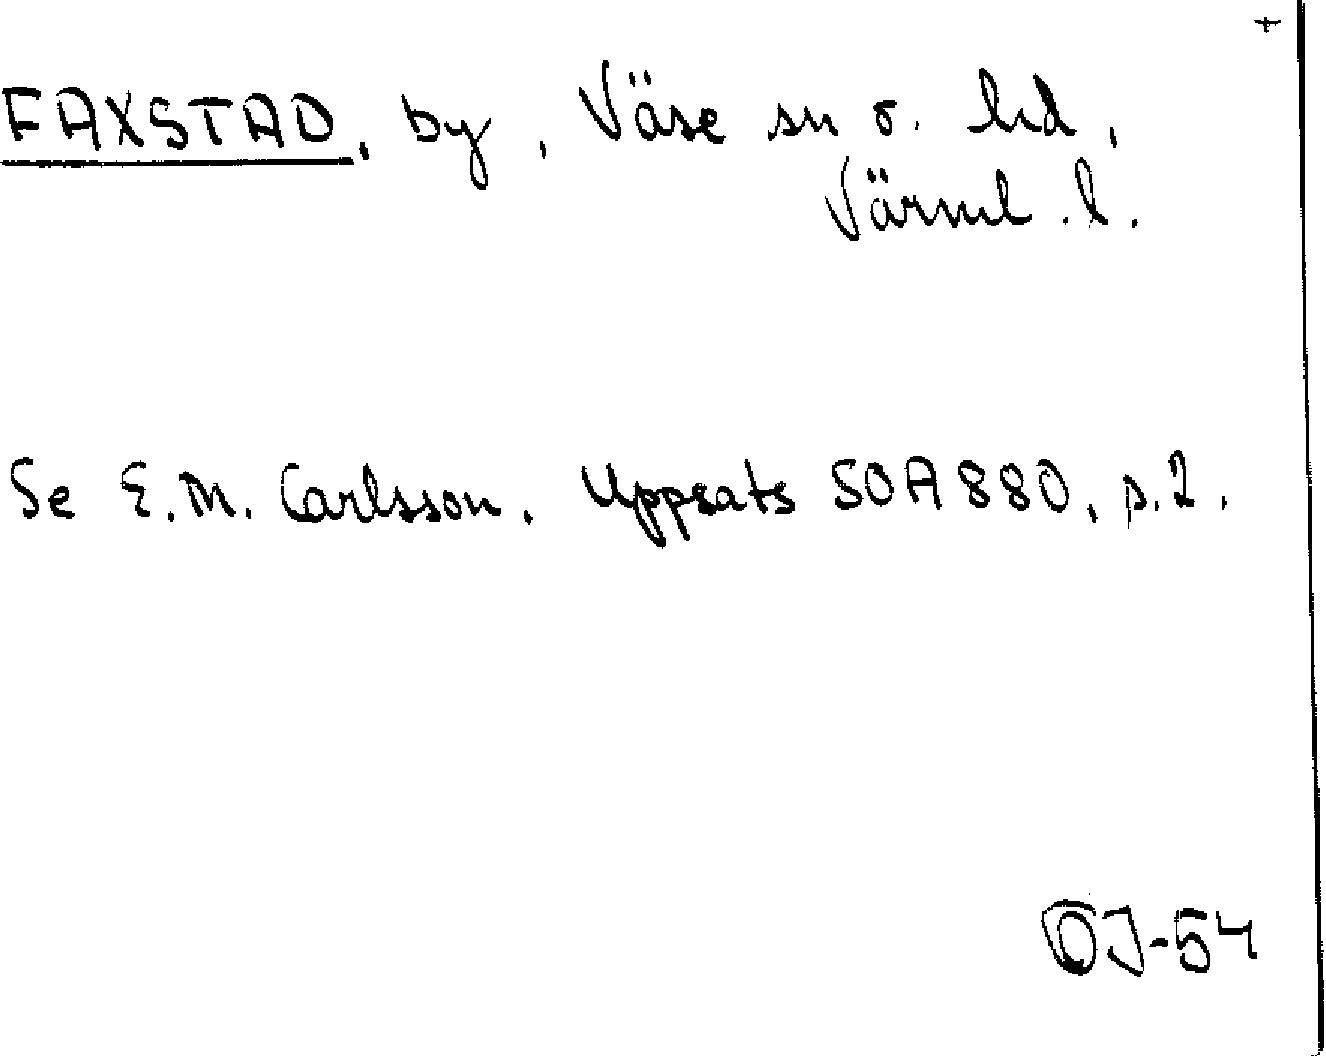 +
FAXSTAD, by, Väse sn o. hd,
Värml. l.
Se E.M. Carlsson, Uppsats SOA 880, s.2.
OJ-54